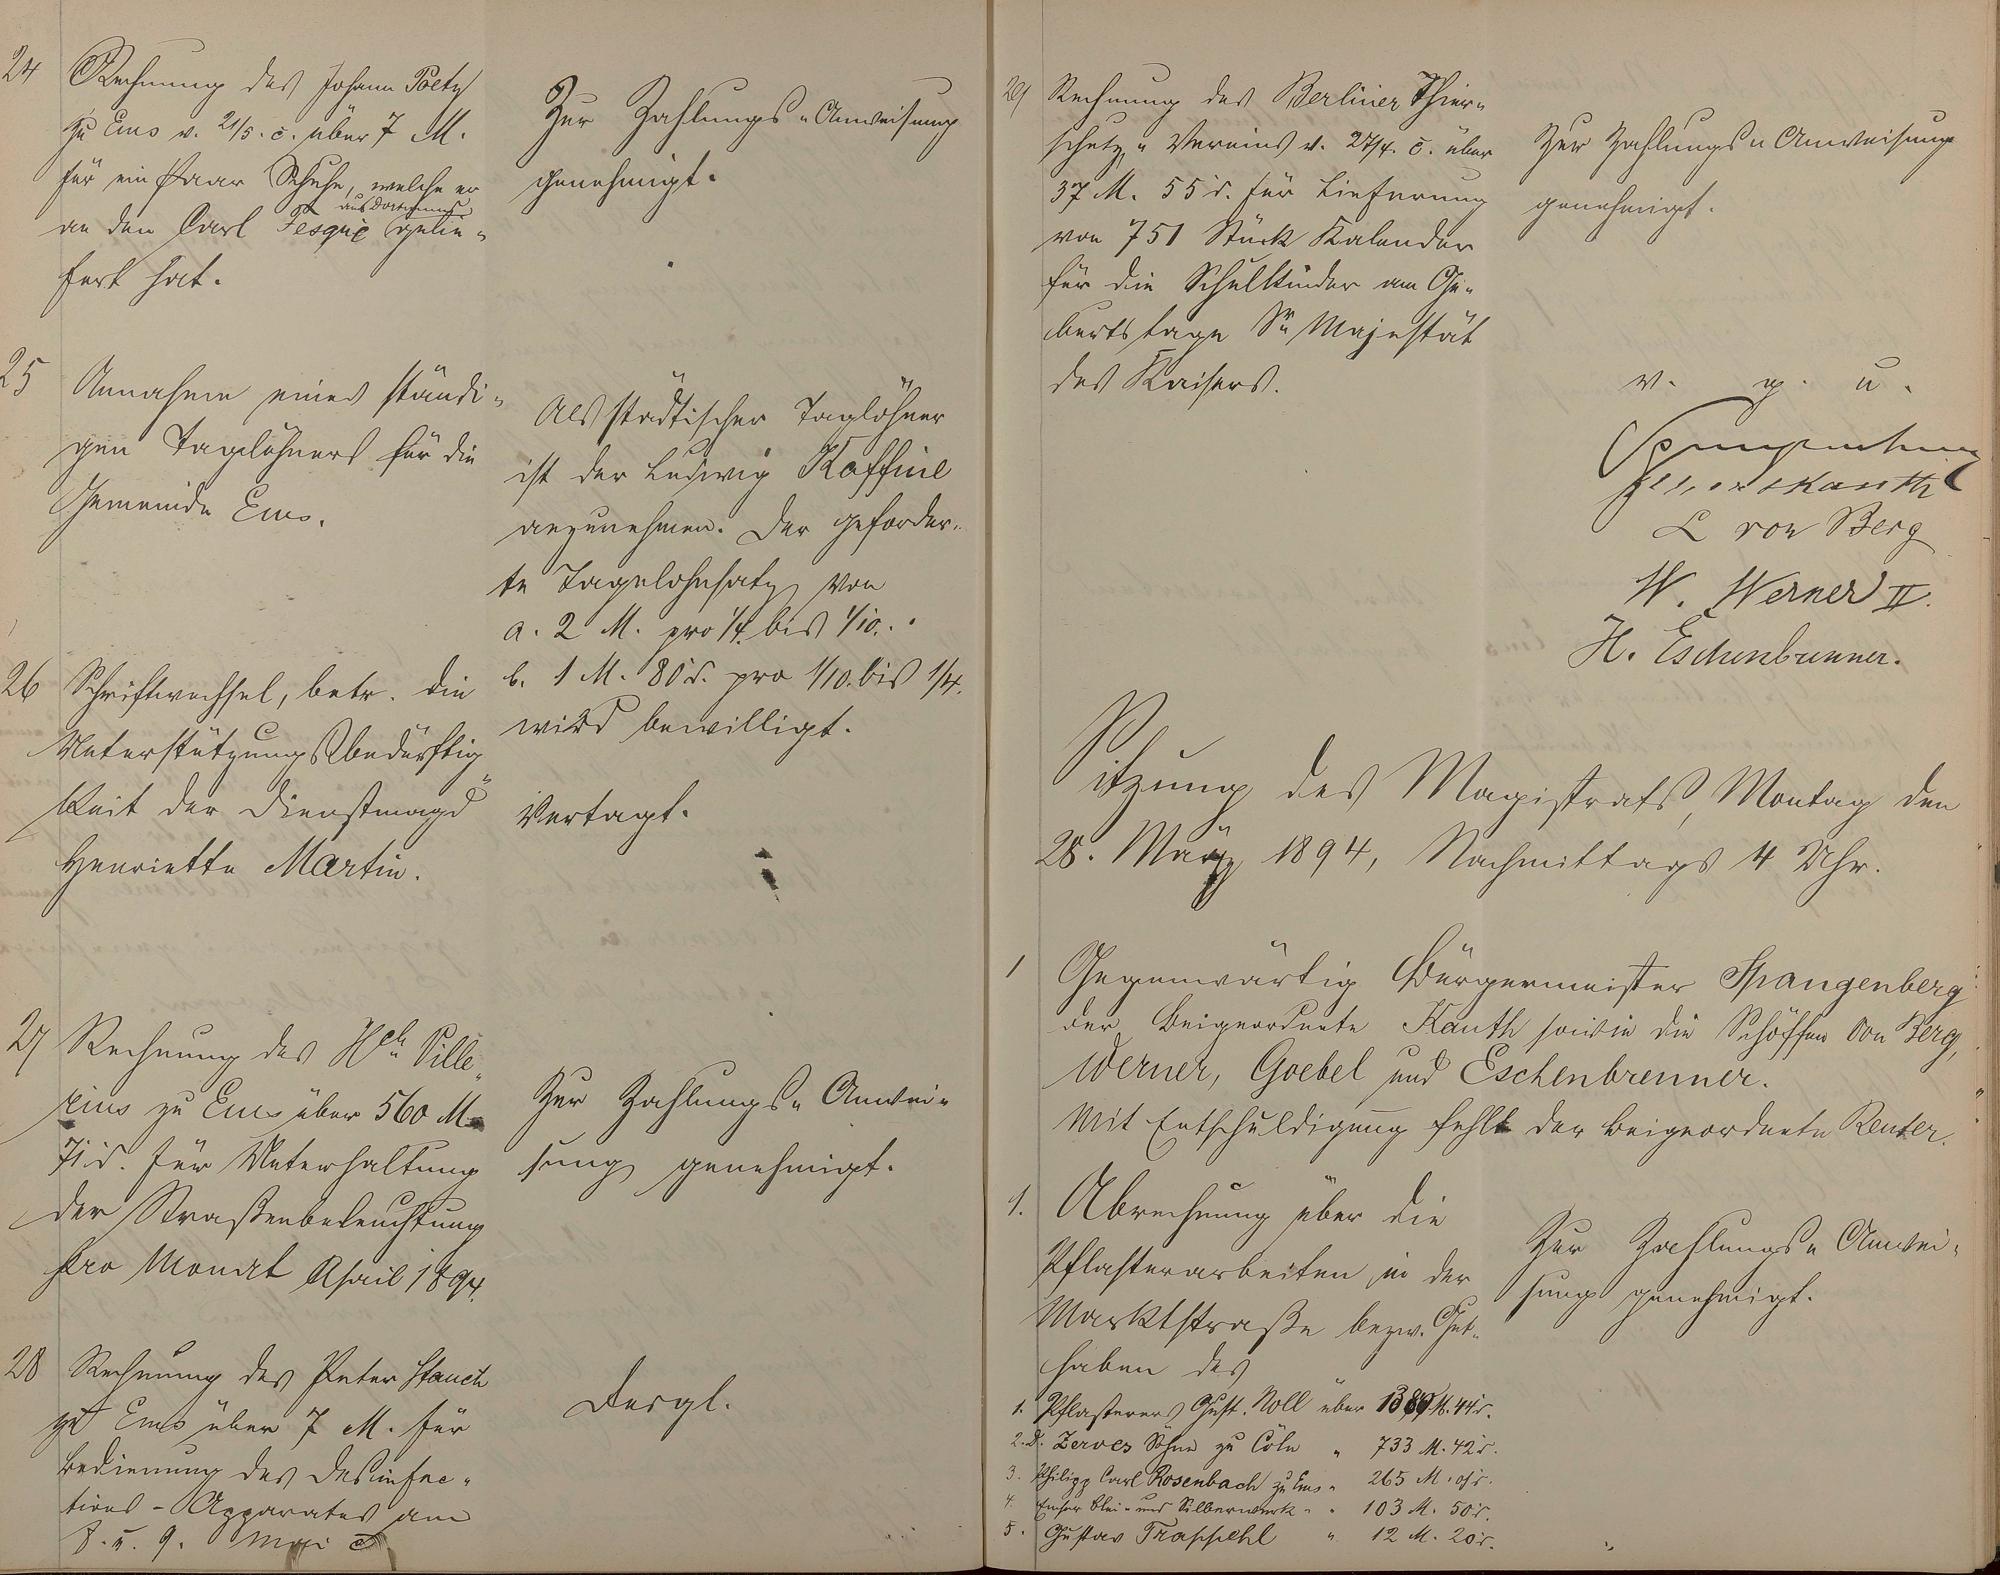 24 Rechnung des Johann Poetz
zu Ems v. 21/5. c. über 7 M.
für ein Paar Schuhe, welche er
an den Carl Fesque gelie-
fert hat.
Zur Zahlungs-Anweisung
genehmigt.
25 Annahme eines ständi-
gen Taglöhners für die
Gemeinde Ems.
Als städtischer Taglöhner
ist der Ludwig Kaffine
anzunehmen. Der geforder-
te Tagelohnsatz von
a. 2 M. pro 1/4. bis 1/10.
b. 1 M. 80 d. pro 1/10. bis 1/4.
wird bewilligt.
26 Schriftwechsel, betr. die
Unterstützungsbedürftig-
keit der Dienstmagd
Henriette Martin.
Vertagt.
27 Rechnung des Hch Pille-
rius zu Ems über 560 M.
71 d. für Unterhaltung
der Straßenbeleuchtung
pro Monat April 1894.
Zur Zahlungs-Anwei-
sung genehmigt.
28 Rechnung des Peter Stauch
zu Ems über 7 M. für
Bedienung des Desinfec-
tions-Apparates am
8. u. 9. Mai c
Desgl.
29 Rechnung des Berliner Thier-
schutz-Vereins v. 27/4. c. über
37 M. 55 d. für Lieferung
von 751 Stück Kalender
für die Schulkinder am Ge-
burtstage Sr Majestät
des Kaisers.
Zur Zahlungs-Anweisung
genehmigt.
v. g. u.
Spangenberg
Kauth
L von Berg
W. Werner II.
H. Eschenbrenner.
Sitzung des Magistrats, Montag den
28. März 1894, Nachmittags 4 Uhr.
1 Gegenwärtig Bürgermeister Spangenberg
der Beigeordnete Kauth sowie die Schöffen von Berg,
Werner, Goebel und Eschenbrenner.
Mit Entschuldigung fehlt der Beigeordnete Reuter.
1. Abrechnung über die
Pflasterarbeiten in der
Marktstraße bezw. Gut-
haben des
1. Pflasterers Gust. Noll über M. 44 d.
2. D. Zerves Söhne zu Cöln " 733 M. 42 d.
3. Philipp Carl Rosenbach zu Ems " 265 M.
4. Emser Blei- und Silberwerk " " 103 M. 50 d.
5. Gustav Trappehl " 12 M. 20 d.
Zur Zahlungs-Anwei-
sung genehmigt.